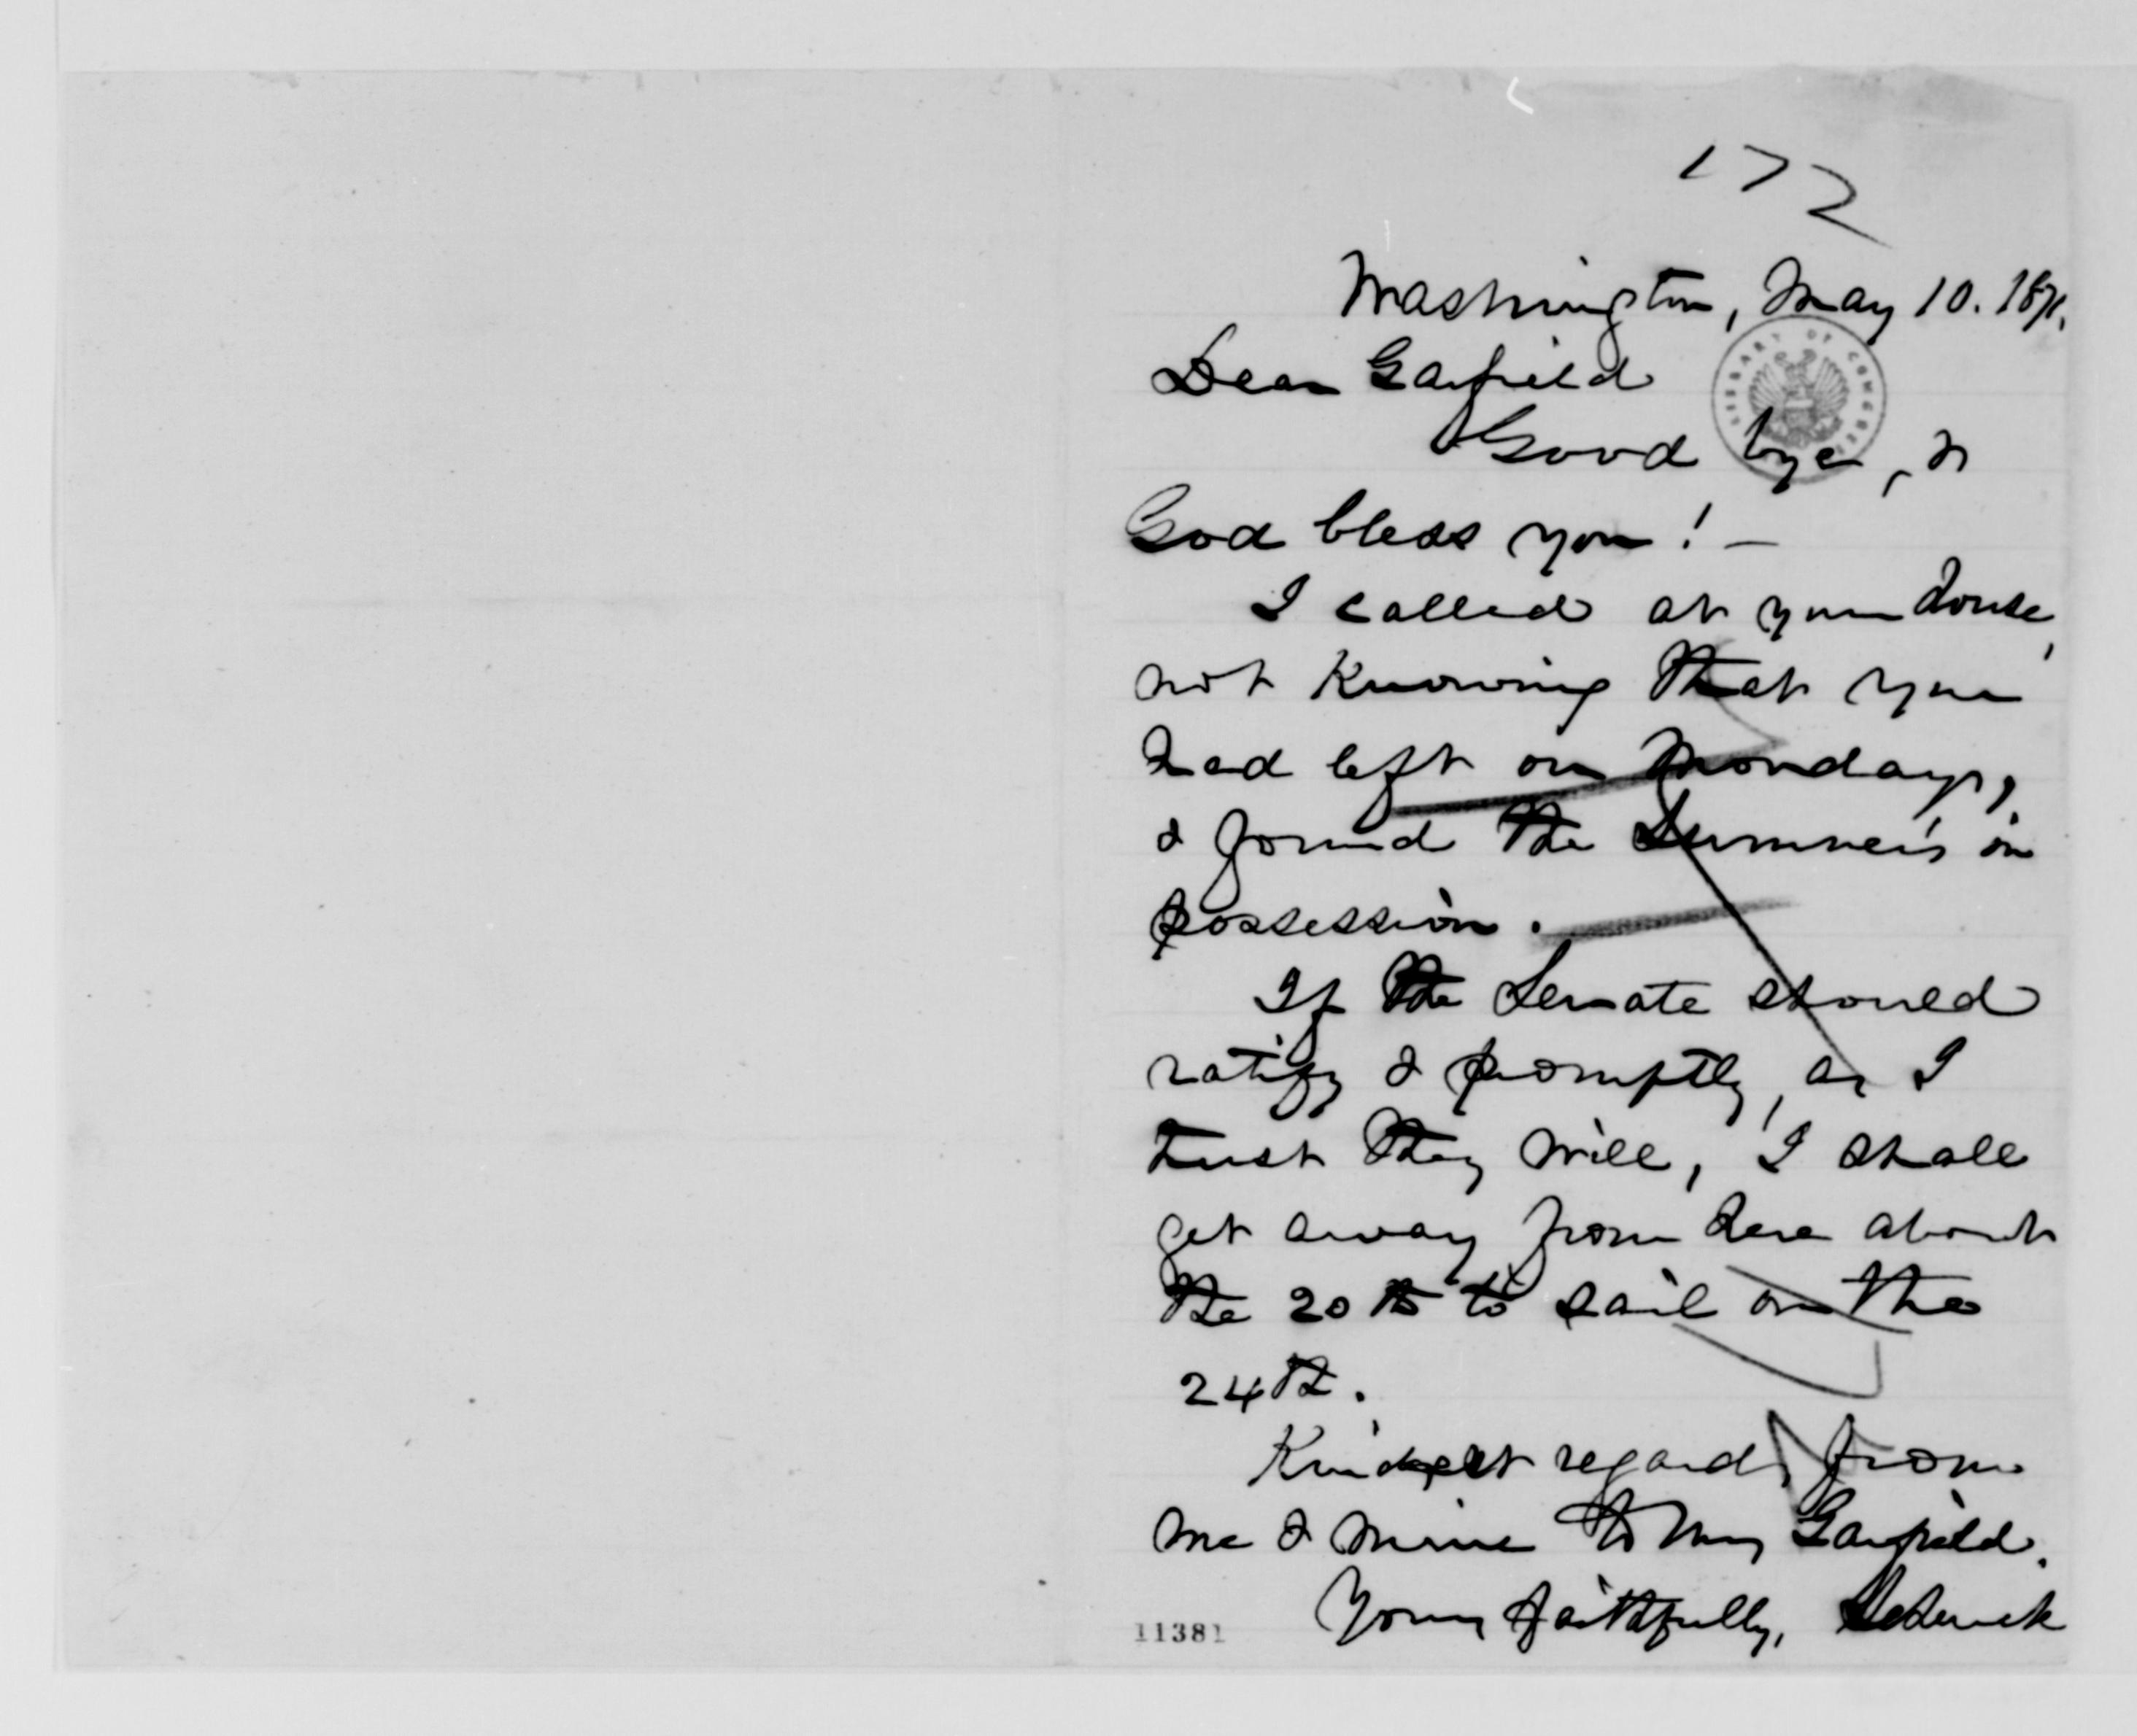 172
Washington, May 10. 1871.
Dear Garfield
LIBRARY OF CONGRESS
Good bye, &
God bless you! —
I called at your house,
not knowing that you
had left on Monday,
& found the Sumners in
possession.
If the Senate should
ratify & promptly, as I
trust they will, I shall
get away from here about
the 20th to sail on the
24th.
Kindest regards from
me & mine to Mrs Garfield.
Yours faithfully, Schenck
11381